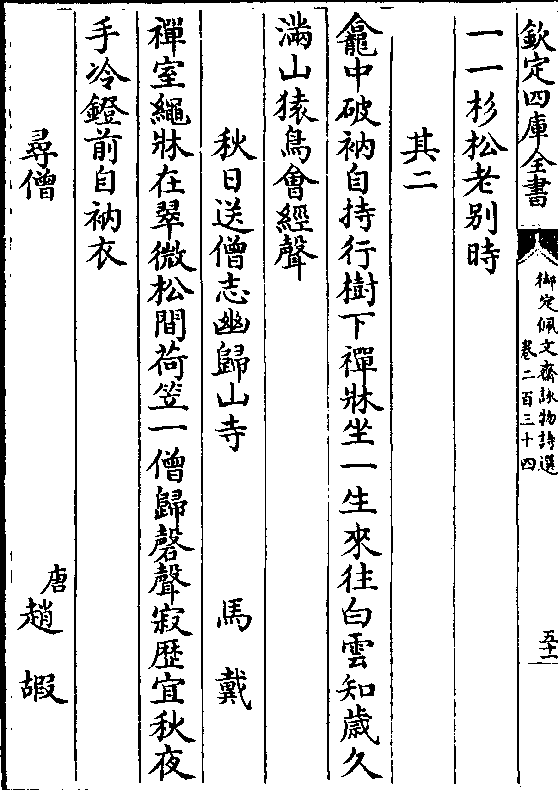 欽定四庫全書
御定佩文齋詠物詩選
卷二百三十四
五十一
一一杉松老別時
其二
龕中破衲自持行樹下禪牀坐一生來往白雲知歲久
滿山猿鳥會經聲
秋日送僧志幽歸山寺 馬戴
禪室繩牀在翠微松間荷笠一僧歸磬聲寂歷宜秋夜
手冷鐙前自衲衣
尋僧 唐趙嘏